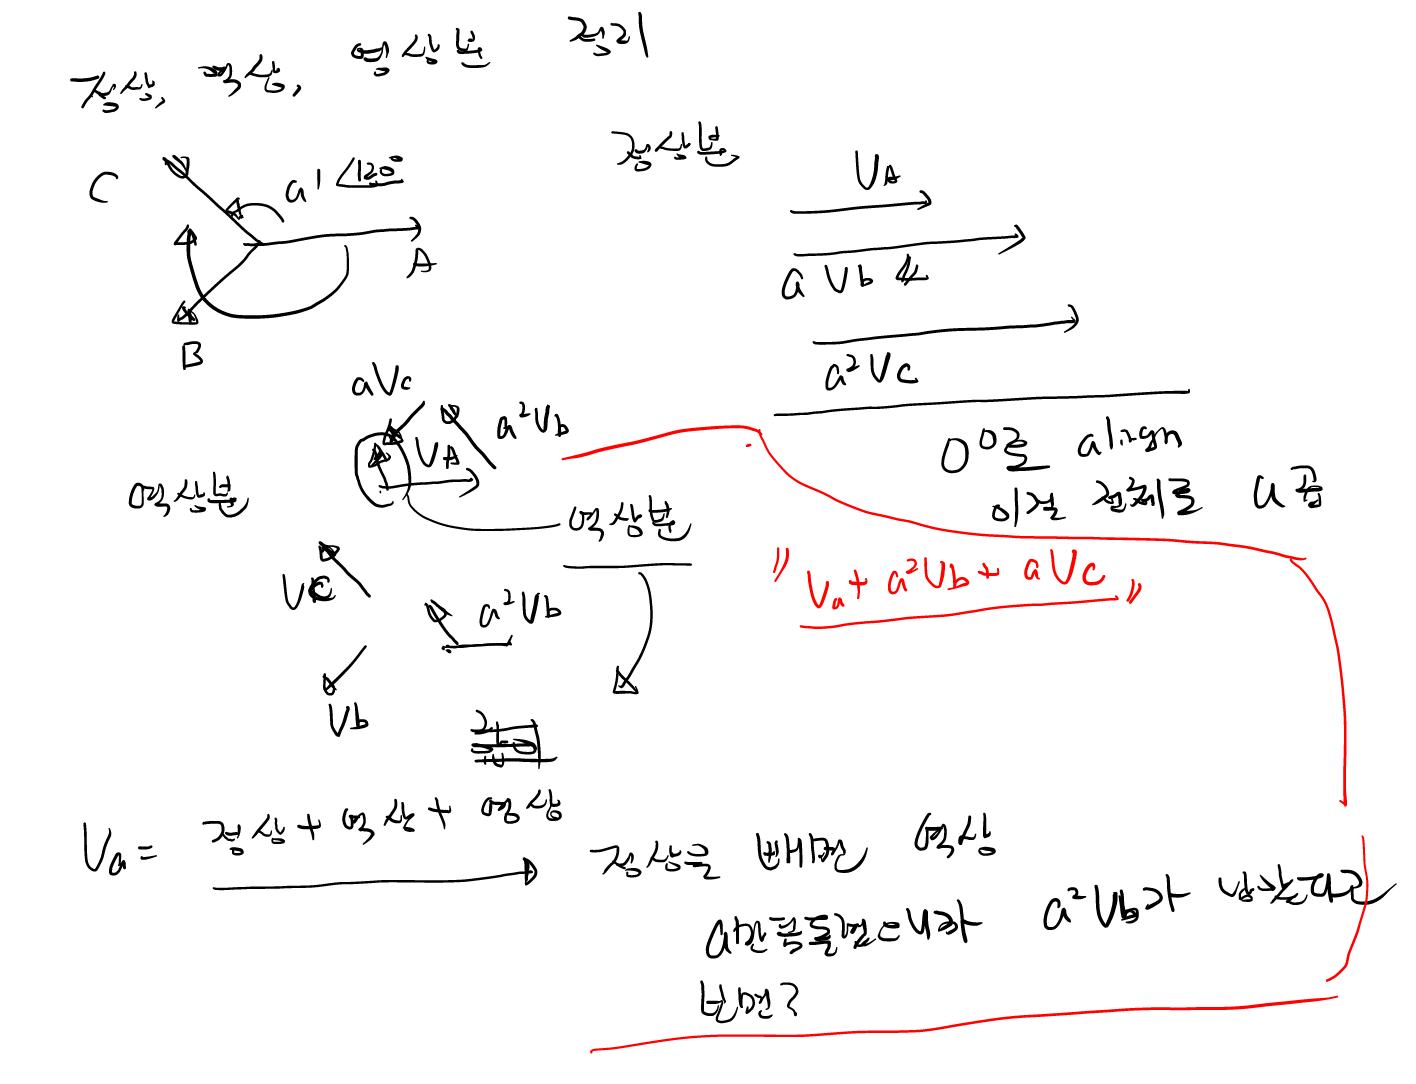 정상, 역상, 영상분 정리
정상분
C
a 1∠120°
A
B
VA
a Vb
a²Vc
0°로 align
이걸 전체로 a곱
aVc
a²Vb
VA
역상분
역상분
"Va + a²Vb + aVc"
Vc
a²Vb
Vb
Va = 정상 + 역상 + 영상
정상을 빼면 역상
a만큼돌렸으니까 a²Vb가 남는다고
보면?